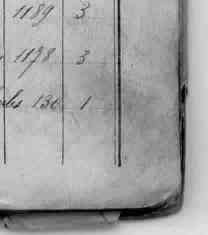 1189 3
1178 3
136 1